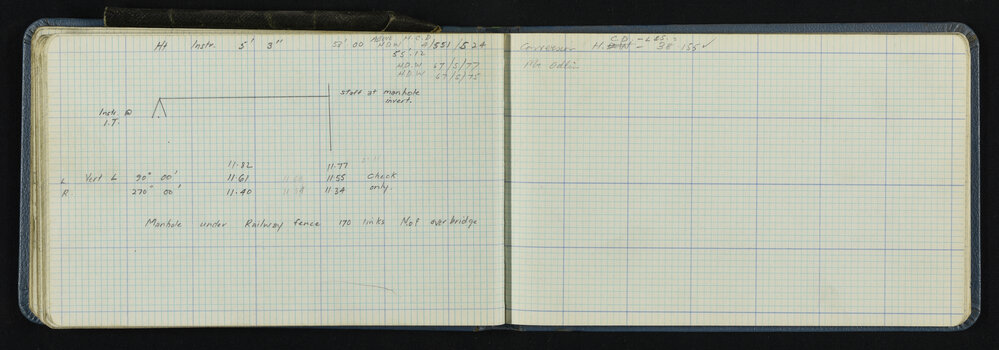 Ht Instr. 5' 3" 53'00
Above H.C.D.
H.D.W 8/551/524
55'.12
H.D.W 67/5/77
H.D.W 67/5/75
staff at manhole
invert.
Instr @
I.T.
11.82 11.77
L Vert L 90° 00' 11.61 11.55 Check
R. 270° 00' 11.40 11.34 only.
Manhole under Railway fence 170 links N. of overbridge
C.D. - L&S
H. - 38.155 ✓
Mr Odlin